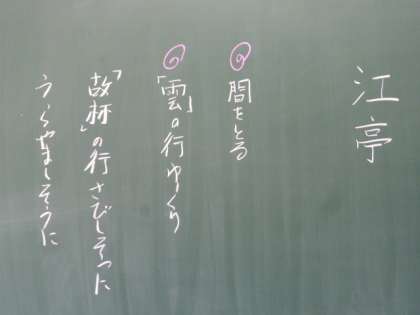 江亭
間をとる
「雲」の行ゆっくり
「故林」の行さびしそうに
うらやましそうに